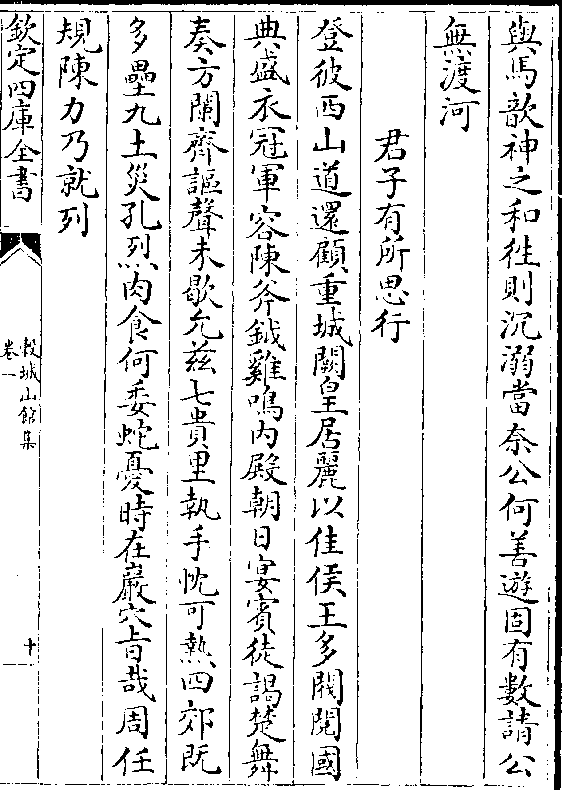 與馬歆神之和徃則沉溺當奈公何善遊固有數請公
無渡河
君子有所思行
登彼西山道還顧重城闕皇居麗以佳侯王多閥閱國
典盛衣冠軍容陳斧鉞雞鳴内殿朝日宴賓徒謁楚舞
奏方闌齊謳聲未歇允兹七貴里執手忱可熱四郊既
多壘九土災孔烈肉食何委蛇憂時在巖穴旨哉周任
規陳力乃就列
欽定四庫全書
榖城山館集
卷一
十